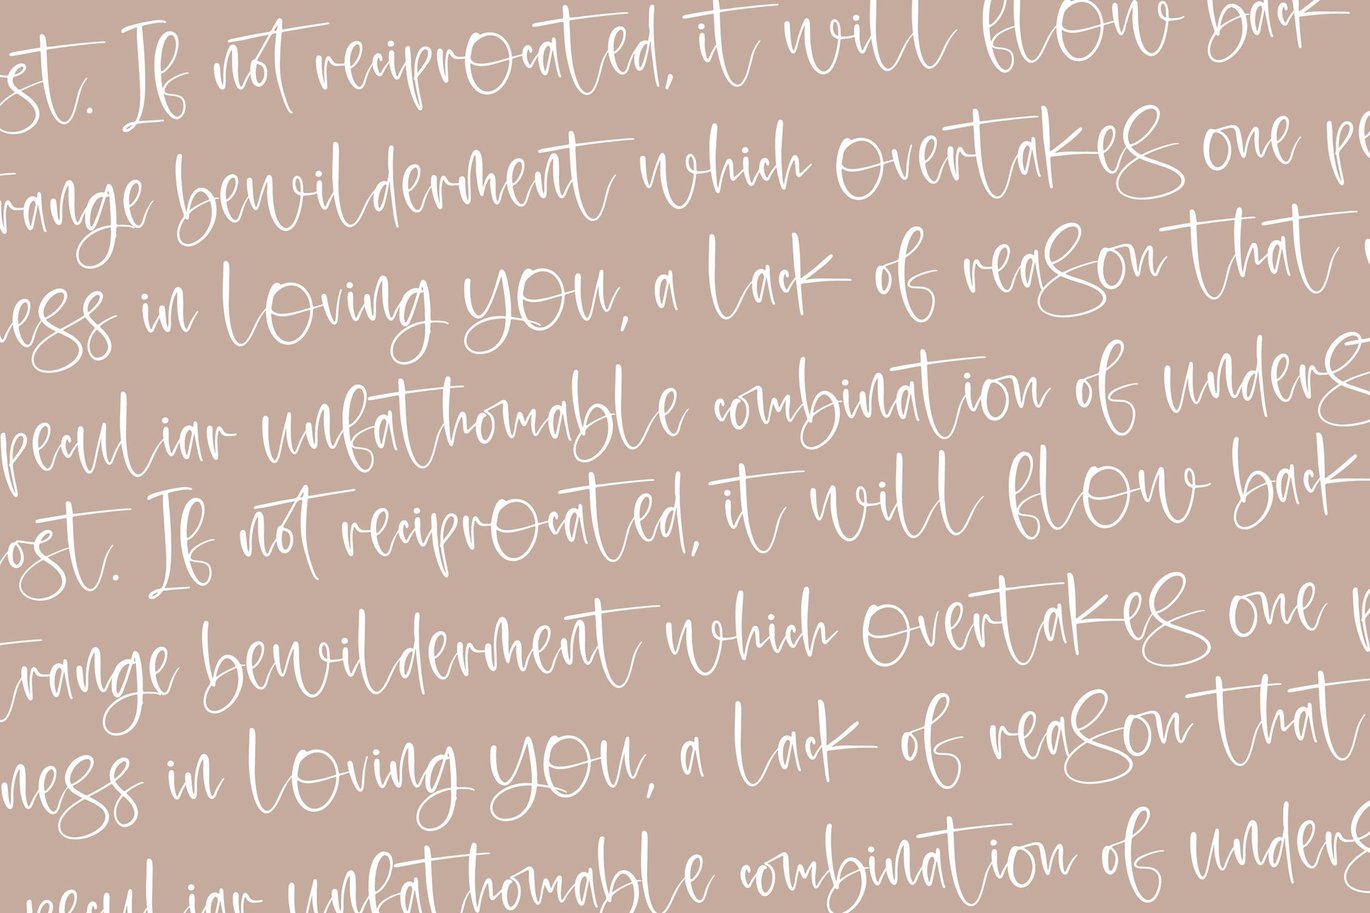 ost. If not reciprocated, it will flow back
range bewilderment which overtakes one pe
ness in loving you, a lack of reason that
peculiar unfathomable combination of unders
ost. If not reciprocated, it will flow back
trange bewilderment which overtakes one p
ness in loving you, a lack of reason that
peculiar unfathomable combination of unders